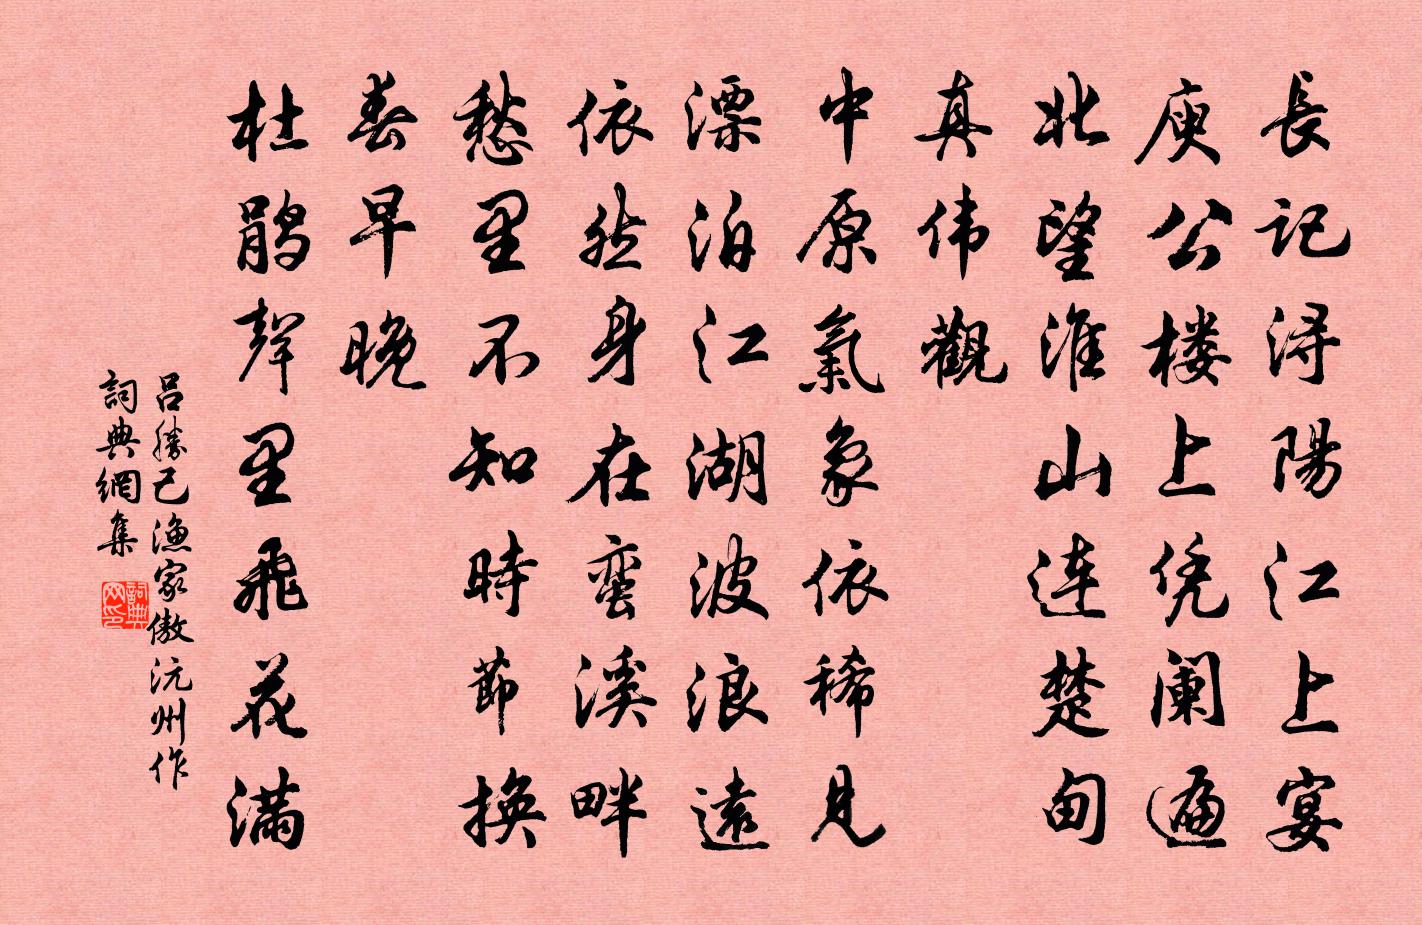 長记浔陽江上宴
庾公楼上凭阑遍
北望淮山连楚甸
真伟觀
中原氣象依稀見
漂泊江湖波浪遠
依然身在蛮溪畔
愁里不知時節換
春早晚
杜鹃聲里飛花满
吕勝己漁家傲沅州作
詞典網集
詞典网印